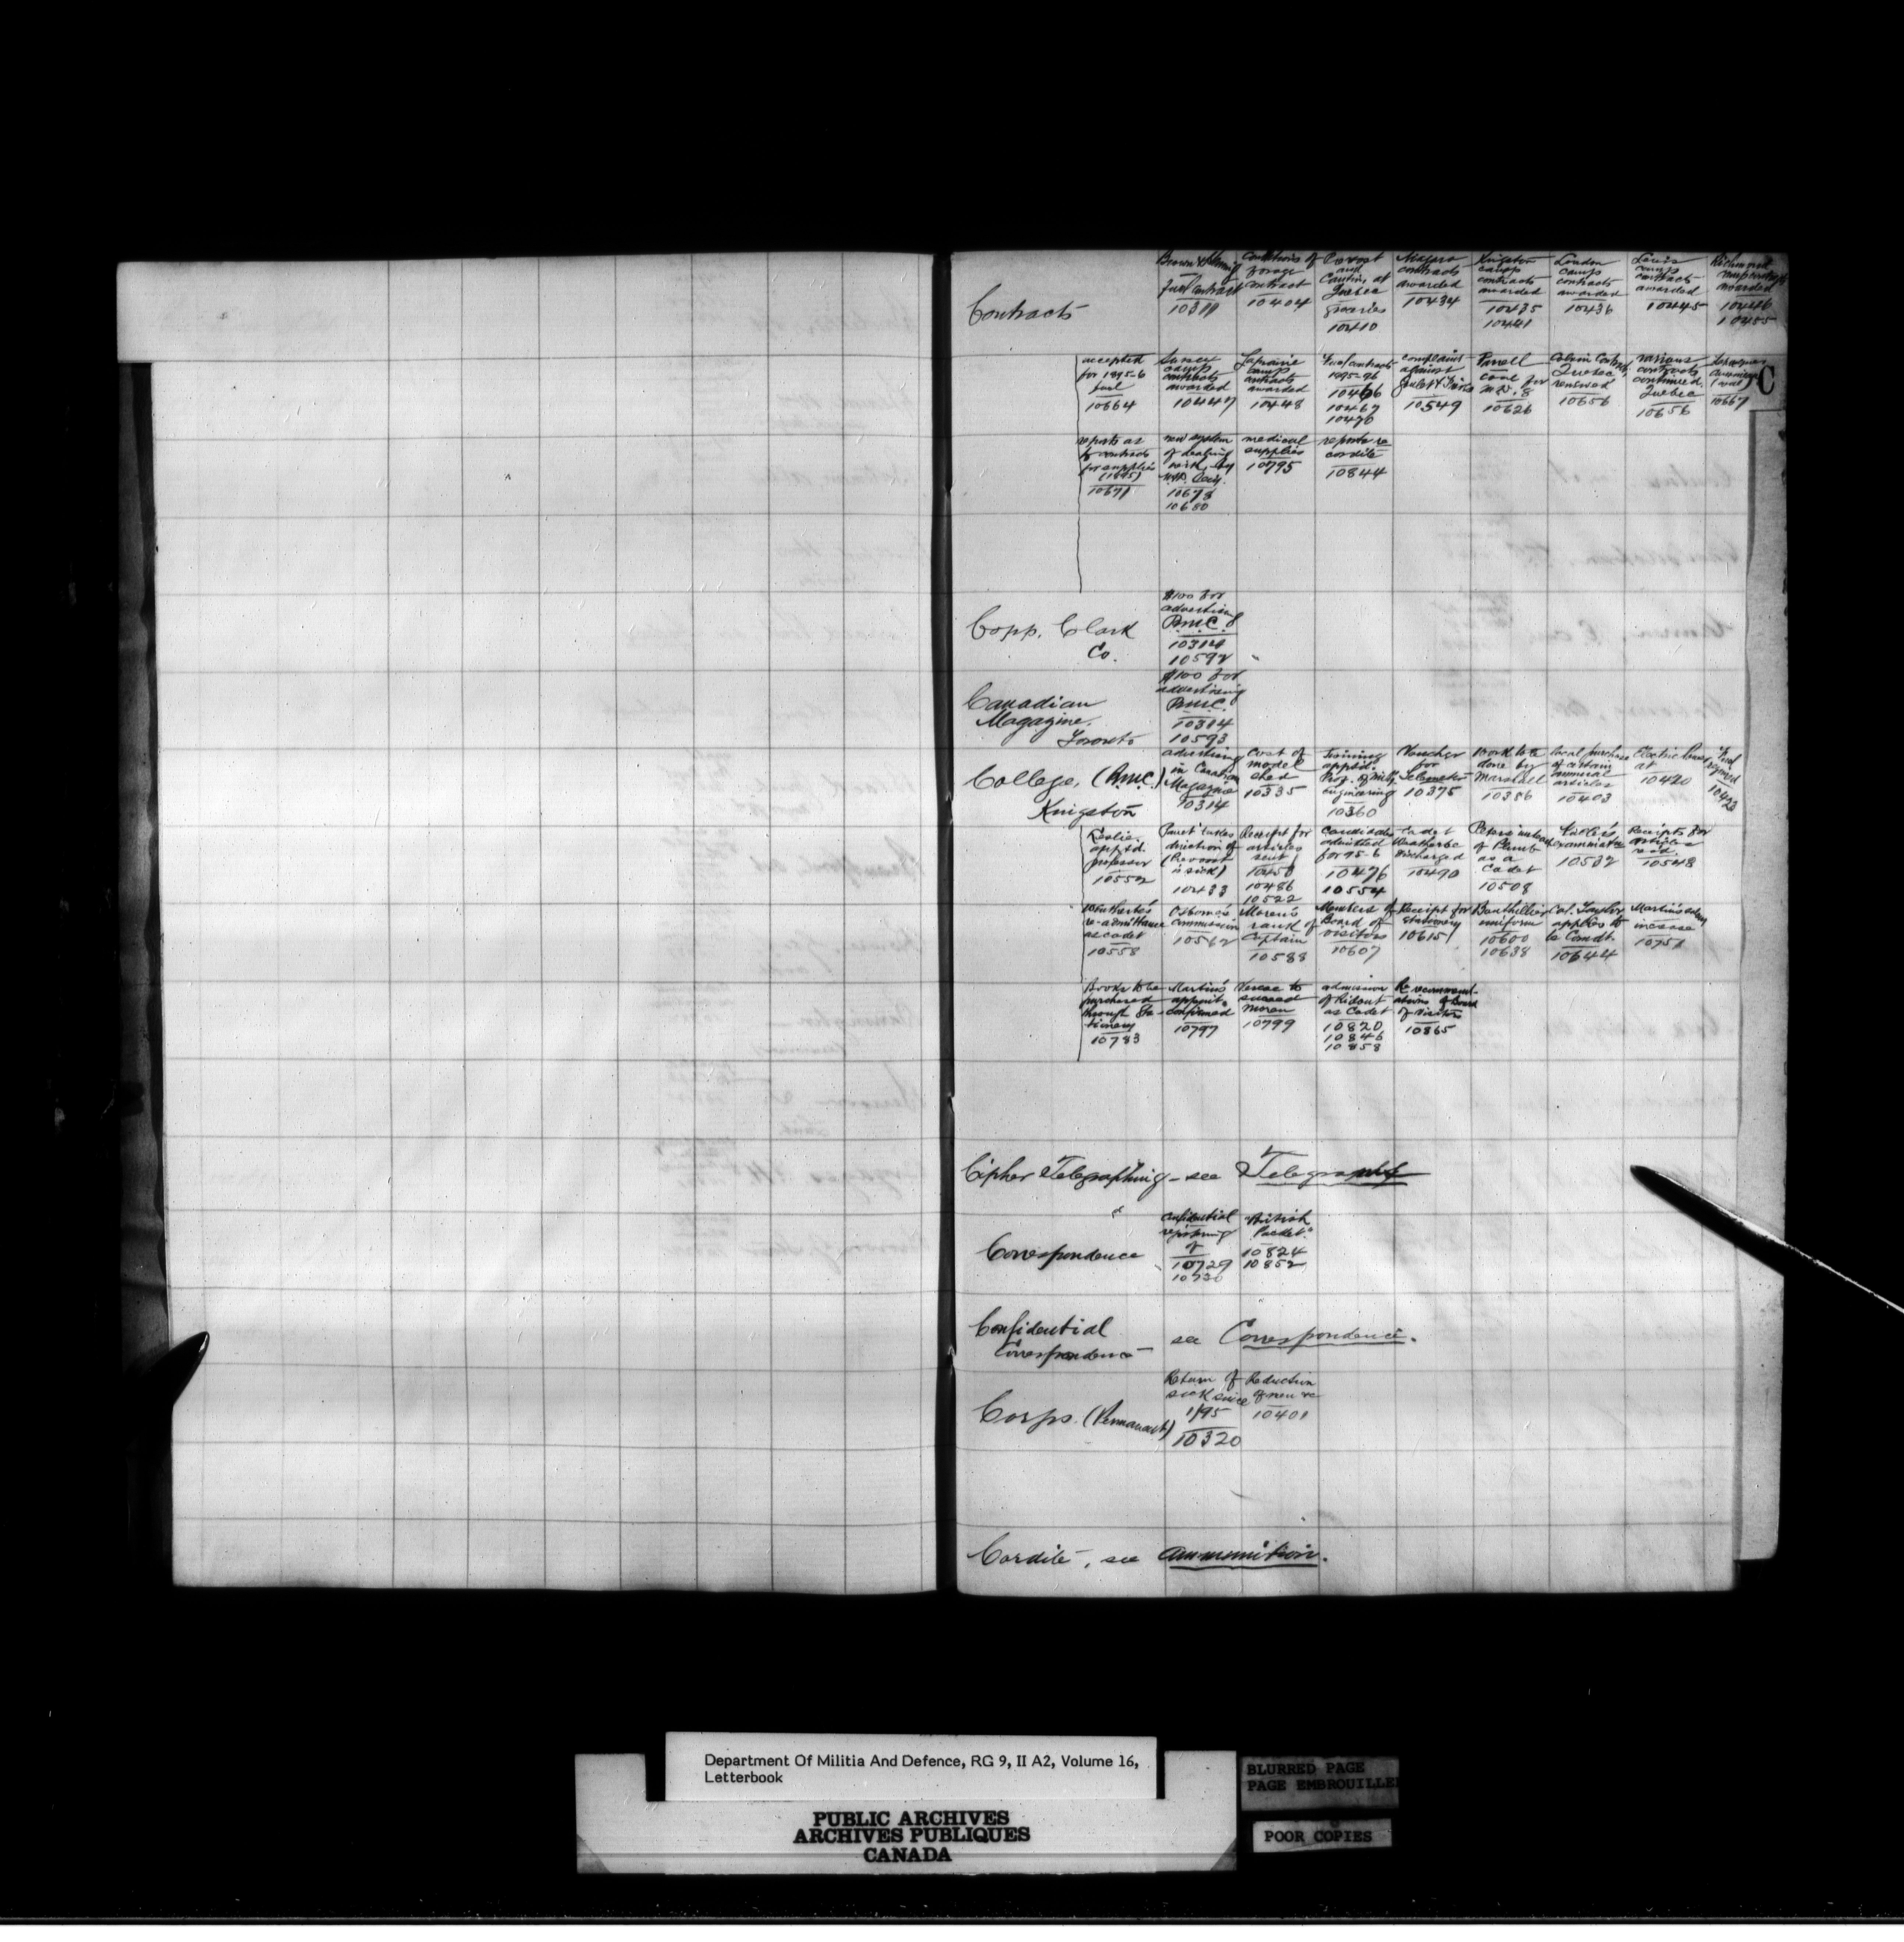 Contracts
fuel contract
10311
Conditions of
forage
contract
10404
Provost
and
Cantin, at
Quebec
groceries
10410
contracts
awarded
10434
Kingston
camp
contracts
awarded
10435
10441
London
camp
contracts
awarded
10436
Levis
camp
contracts
awarded
10445
Richmond
awarded
10446
10455
accepted
for 1895-6
fuel
10664
Sussex
camp
contracts
awarded
10447
Laprairie
camp
contracts
awarded
10448
Fuel contracts
1895-96
10466
10467
10470
complaint
against
10549
coal for
M.D. 8
10626
Quebec
renewed
10656
various
contracts
continued.
Quebec
10656
10667
C
reports as
to contracts
for supplies
(1895)
10671
new system
of dealing
with, by
10678
10680
medical
supplies
10795
reports re
cordite
10844
Copp, Clark
Co.
$100 for
advertising
R.M.C.
10314
10592
Canadian
Magazine.
Toronto
$100 for
advertising
R.M.C.
10314
10593
College, (R.M.C.)
Kingston
advertising
in Canadian
Magazine
10314
Cost of
model
shed
10335
Twining
apptd.
Prof. of Mil'y
engineering
10360
Voucher
for
10375
Work to be
done by
Marshall
10386
local purchase
of certain
articles
10403
at
10420
Fuel
required
10423
Leslie
apptd.
professor
10552
duction of
(Prevost
is sick)
10433
Receipt for
articles
sent
10450
10486
10522
Candidates
admitted
for 95-6
10476
10554
Cadet
Weatherbe
discharged
10490
of Plumb
as a
Cadet
10508
examination
10532
Receipts for
articles
10548
Weatherbe's
re-admittance
as cadet
10558
Osborne's
commission
10562
Moren's
rank of
Captain
10588
Members of
Board of
visitors
10607
Receipt for
stationery
10615
uniform
10600
10638
Col. Taylor
applies to
be Comdt.
10644
Martin's salary
increase
10751
Books to be
purchased
through Sta-
tionery
10783
Martin's
appoint.
confirmed
10797
succeed
Moren
10799
admission
of Ridout
as Cadet
10820
10846
10858
Recommend-
ations of Board
of Visitors
10865
Cipher Telegraphing - see Telegraphy
Correspondence
confidential
registering
of
10729
10730
"British
Packet."
10824
10852
Confidential
Correspondence
see Correspondence.
Corps. (Permanent)
Return of
sick since
1/95
10320
Reduction
of men re
10401
Cordite, see ammunition.
Department Of Militia And Defence, RG 9, II A2, Volume 16,
Letterbook
PUBLIC ARCHIVES
ARCHIVES PUBLIQUES
CANADA
BLURRED PAGE
PAGE EMBROUILLEE
POOR COPIES